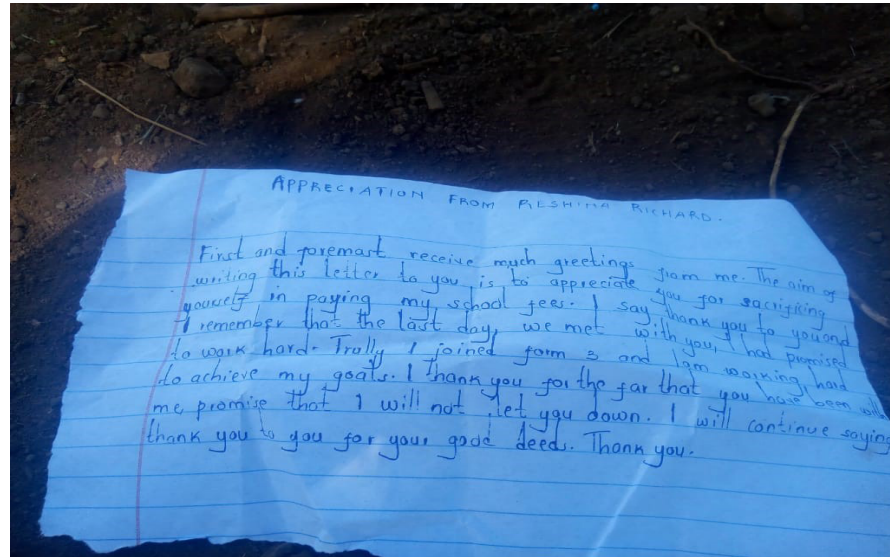 APPRECIATION FROM RESHINA RICHARD.
First and foremast receive much greetings from me. The aim of
writing this letter to you is to appreciate you for sacrificing
yourself in paying my school fees. I say thank you to you and
I remember that the last day, we met with you, I had promised
to work hard. Trully I joined form 3 and I am working hard
to achieve my goals. I thank you for the far that you have been with
me, promise that I will not let you down. I will continue saying
thank you to you for your good deeds. Thank you.